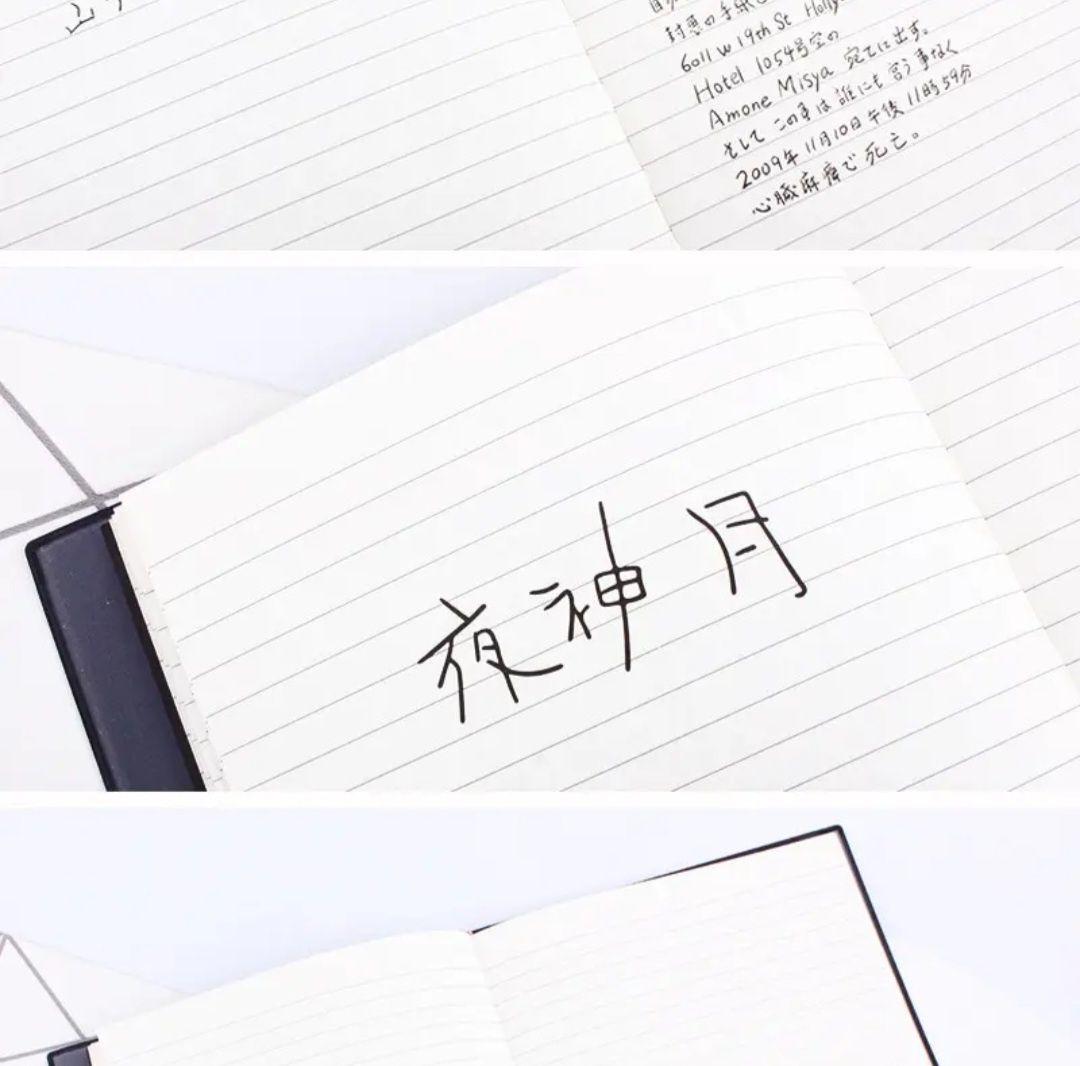 封悪の手紙を
6011 W 19th St Holly
Hotel 1054号室の
Amone Misya 宛てに出す。
そして この事は 誰にも 言う事なく
2009年 11月10日 午後 11時59分
心臓麻痺で 死亡。
夜神月